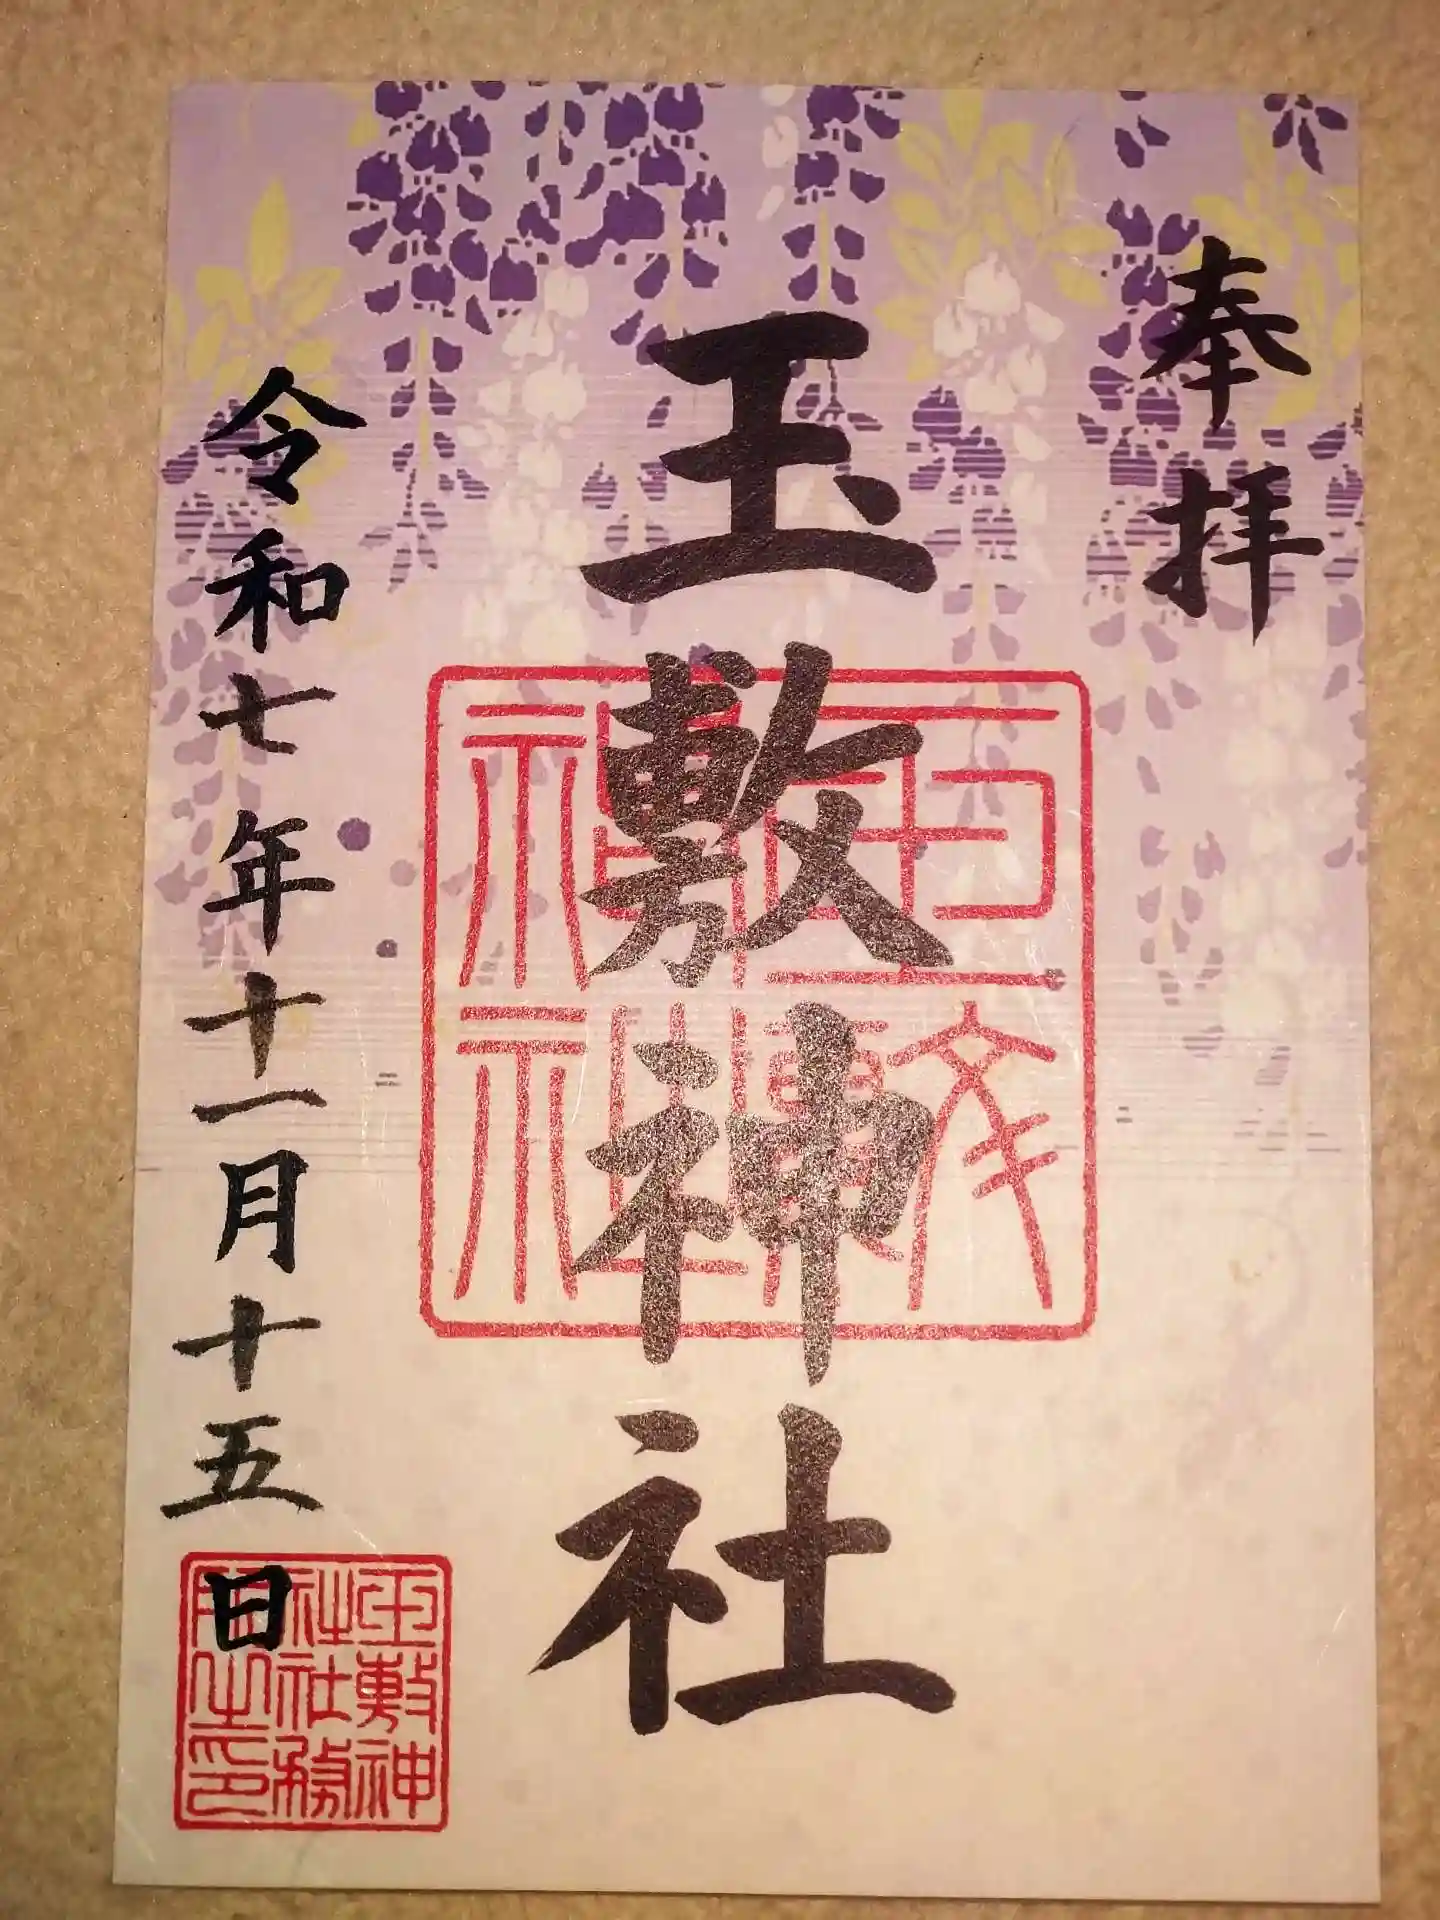 奉拝
玉敷神社
令和七年十一月十五日
玉敷神
社社務
所之印